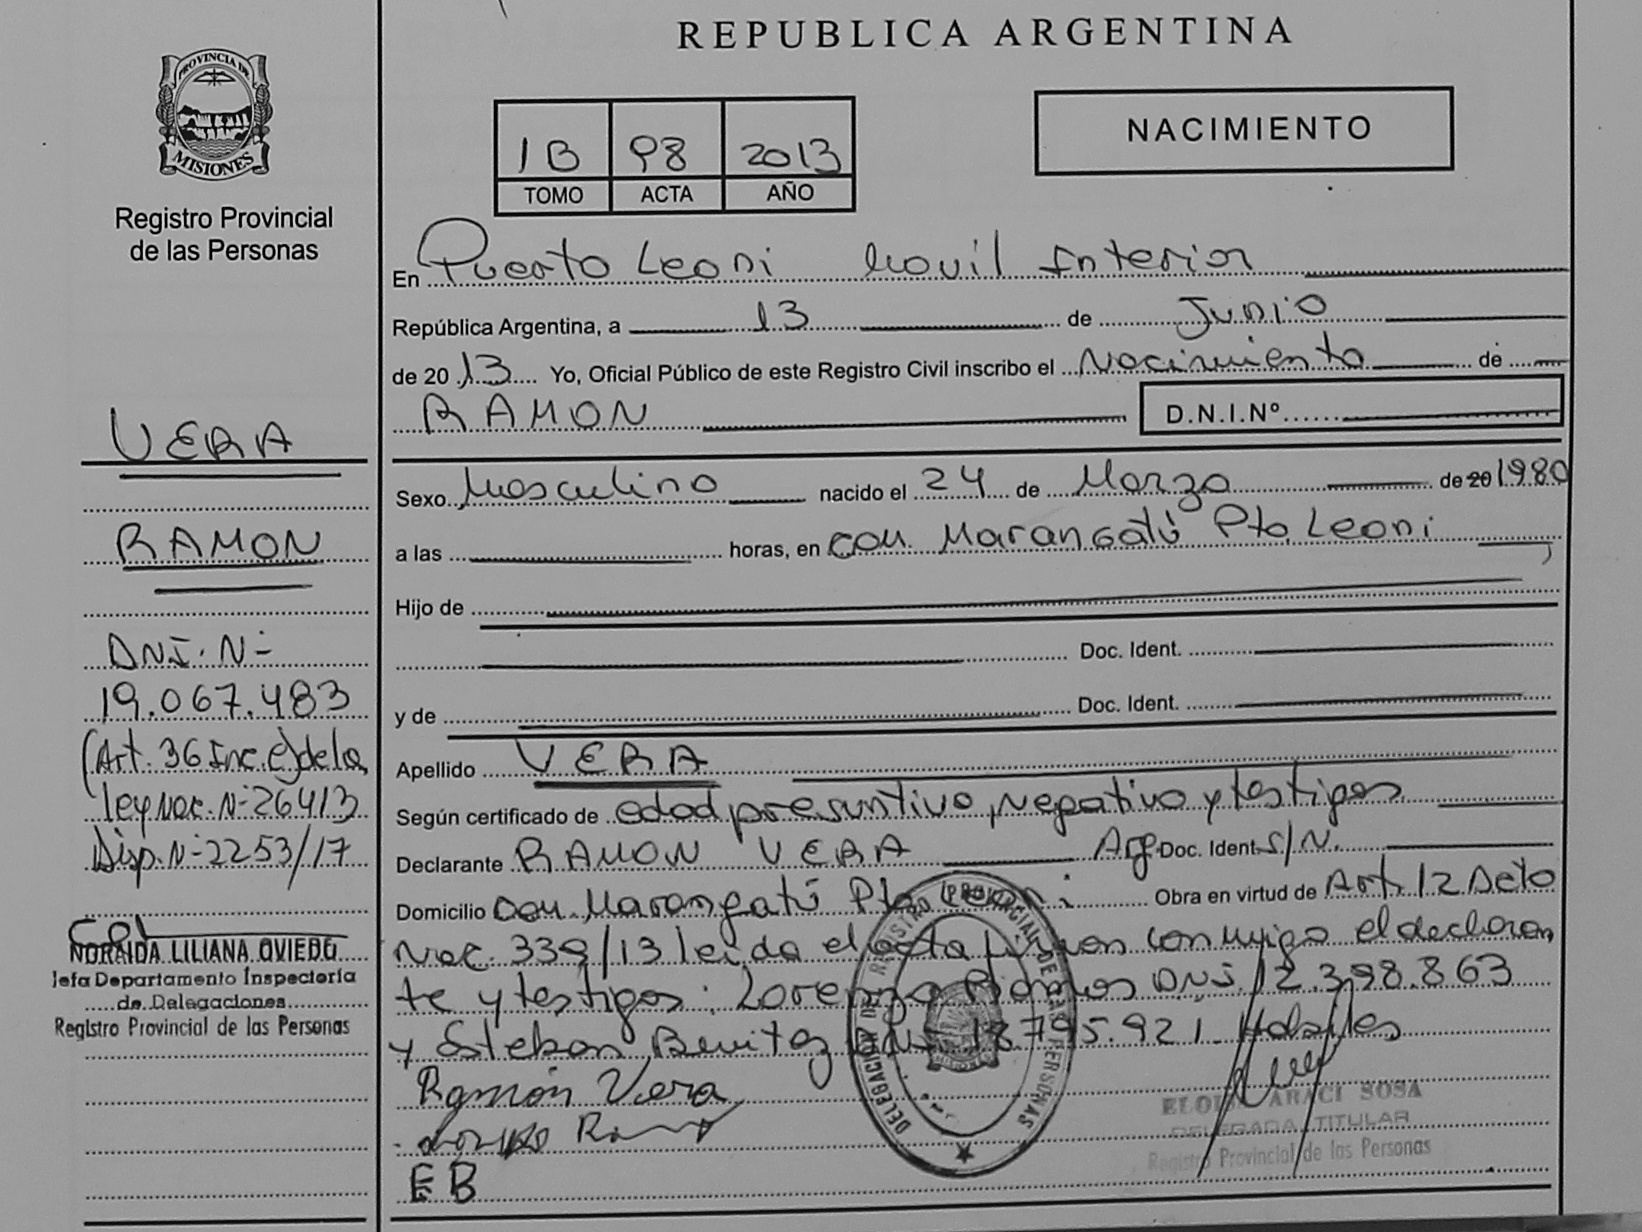 REPUBLICA ARGENTINA
PROVINCIA DE
MISIONES
Registro Provincial
de las Personas
1B 98 2013
TOMO ACTA AÑO
NACIMIENTO
En Puerto Leoni Movil Interior
República Argentina, a 13 de Junio
de 2013 Yo, Oficial Público de este Registro Civil inscribo el Nacimiento de
RAMON D.N.I.Nº
Sexo Masculino nacido el 24 de Marzo de 20 1980
a las horas, en Com. Marangatú Pto Leoni
Hijo de
Doc. Ident.
y de Doc. Ident.
Apellido VERA
Según certificado de edad presuntiva, negativo y testigos
Declarante RAMON VERA Arg Doc. Ident. S/N.
Domicilio Com. Marangatú Pto Leoni Obra en virtud de Art. 12 Dcto
Nac. 339/13 leida el acta firman conmigo el declaran
te y testigos: Lorenzo Ramos DNI 12.398.863
y Esteban Benitez DNI 18.795.921 Habiles
Ramón Vera
Lorenzo
EB
VERA
RAMON
DNI. N-
19.067.483
(Art. 36 Inc. e) de la
ley Nac. N- 26413
Disp. N- 2253/17
NORAIDA LILIANA OVIEDO
Jefa Departamento Inspectoría
de Delegaciones
Registro Provincial de las Personas
REGISTRO PROVINCIAL DE LAS PERSONAS
DELEGACION
ARACI SOSA
DELEGADA TITULAR
Registro Provincial de las Personas